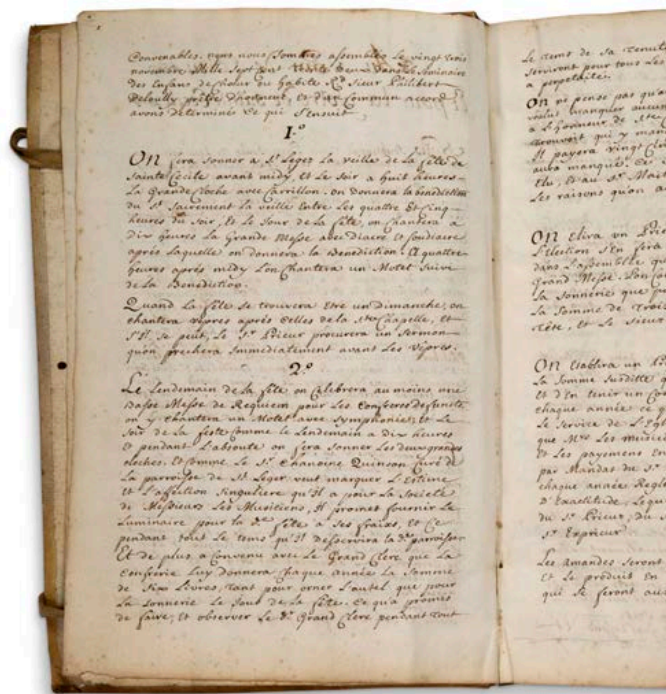 Convenables. nous nous sommes assemblés Le vingt trois
novembre Mille Sept cent trente Deux dans Le Seminaire
des Enfans de chœur du habite Sieur Philibert
prêtre et d'un Commun accord
avons determiné Ce qui S'ensuit
1.º
ON fera sonner a St Leger La veille de La fête de
Sainte Cecile avant midy, et Le soir a huit heures
La Grande Cloche avec Carrillon. on Donnera la benediction
du St Sacrement La veille Entre Les quattre Et Cinq
heures du soir, Et Le Jour de La fête, on chantera a
dix heures La Grande Messe avec Diacre et soudiacre
après Laquelle on donnera La Benediction. A quattre
heures après midy L'on chantera un Motet Suivi
de La Benediction.
Quand La fête se trouvera Etre un Dimanche, on
chantera vêpres après Celles de la Ste Chapelle, et
S'il se peut, Le Sr Prieur procurera un sermon
qu'on prechera Immediatement avant Les vêpres.
2.º
Le Lendemain de La fête on Celebrera au moins une
Basse Messe de Requiem pour Les Confreres defuncts
on y chantera un Motet avec Symphonie; et Le
Soir de La fête Comme Le Lendemain a dix heures
et pendant L'absoute on fera sonner Les deux grandes
cloches. Et Comme Le Sr Chanoine Quinson Curé de
La parroisse de St Leger veut marquer L'estime
et L'affection singuliere qu'il a pour La Societé
de Messieurs Les Musiciens, Il promet fournir Le
Luminaire pour la de fête a ses fraix, et Ce
pendant tout Le tems qu'il desservira la de parroisse
Et de plus a Convenu avec Le Grand Clerc que La
Confrerie Luy Donnera Chaque année La Somme
de Six Livres, tant pour orner L'autel que pour
La sonnerie Le Jour de La fête. Ce qu'a promis
de faire, Et observer Le d. Grand Clerc pendant tout
Le tems de sa tenue
serviront pour tous Les
a perpetuité.
ON ne pense pas qu'on
voulut manquer aucun
a L'honneur de Ste
trouvoit qui y man
Il payera vingt
aura manqué. Ce
Elu, Et au Sr Mait
Les raisons qu'on a
ON Elira un Prieur
L'Election S'en fera
dans L'assemblée qui
Grand Messe. L'on
Sa Sonnerie que p
La Somme de Trois
tête, Et Le Sieur
ON Etablira un
La Somme Susditte
Et d'en tenir un
chaque année ce
Le Service de L'Egl
que Mrs Les Musicie
Et Les payemens En
par Mandat du Sr
chaque année Regl
D'Exactitude, Leque
du Sr Prieur, du
Sr Exprieur
Les Amandes Seront
Et Le produit En
qui se feront aux